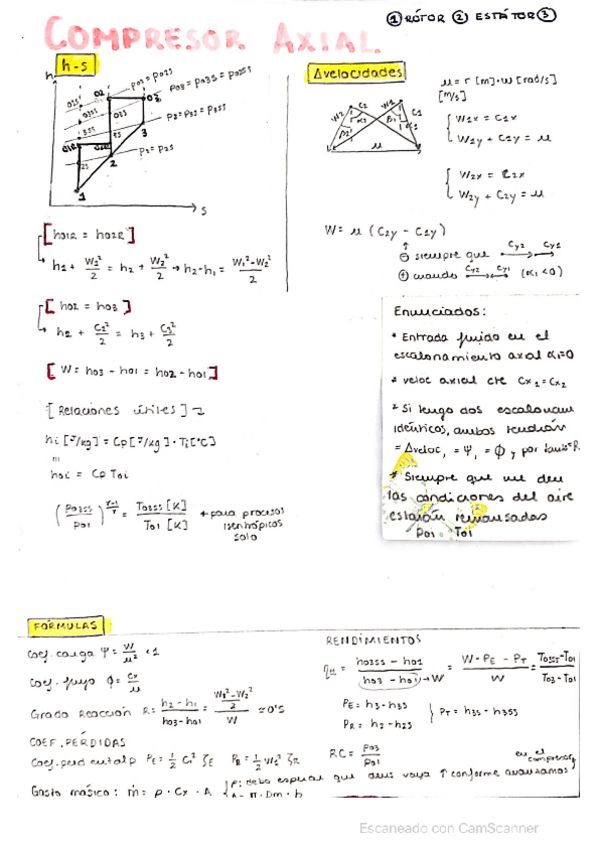 ① RÓTOR ② ESTÁTOR ③
COMPRESOR AXIAL
h-s
h
p02 = p02s
p03 = p03s = p03ss
p3 = p3s = p3ss
p2 = p2s
02
03
3
2
1
s
[ h01R = h02R ]
h1 + W1²/2 = h2 + W2²/2 → h2-h1 = W1²-W2²/2
[ h02 = h03 ]
h2 + C2²/2 = h3 + C3²/2
[ W = h03 - h01 = h02 - h01 ]
[ Relaciones útiles ]
hi [J/kg] = Cp [J/kg] · Ti [°C]
h0i = Cp T0i
(p03ss/p01)^(γ-1/γ) = T03ss [K] / T01 [K] * para procesos
isentrópicos
solo
Δ velocidades
u = r [m] · ω [rad/s]
[m/s]
W2 C2 W1 C1
β2 α2 β1 α1
u
W1x = C1x
W1y + C1y = u
W2x = C2x
W2y + C2y = u
W = u (C2y - C1y)
⊖ siempre que Cy2 Cy1
⊕ cuando Cy2 Cy1 (α1 < 0)
Enunciados:
* Entrada fluido en el
escalonamiento axial α1=0
* veloc axial cte Cx1 = Cx2
* Si tengo dos escalonam
idénticos, ambos tendrán
= Δveloc, = Ψ, = Φ y por tanto = R
* Siempre que me den
las condiciones del aire
estarán remansadas
p01 T01
FÓRMULAS
Coef. carga Ψ = W/u² < 1
Coef. flujo Φ = Cx/u
Grado Reacción R = h2-h1/h03-h01 = (W1²-W2²/2)/W ≈ 0'5
COEF. PÉRDIDAS
Coef. perd entalp PE = 1/2 C2² ζE PR = 1/2 W2² ζR
Gasto másico: ṁ = ρ · Cx · A { ρ: debo esperar que deus vaya ↑ conforme avanzamos
en el
compresor
A = π · Dm · h
RENDIMIENTOS
= h03ss - h01 / h03 - h01 → W = W - PE - PR / W = T03ss - T01 / T03 - T01
PE = h3 - h3s
PR = h2 - h2s } PT = h3s - h3ss
RC = p03/p01
Escaneado con CamScanner